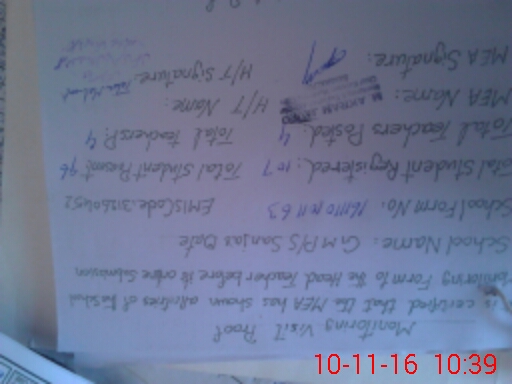 Monitoring Visit Proof
is certified that the MEA has shown all entries of the School
Monitoring Form to the Head Teacher before its online submission
School Name: GMP/S Sanjas Date
School Form No: EMIS Code: 31260452
Total Student Registered: 107 Total Student Present 96
Total Teachers Posted: 4 Total Teachers P: 4
MEA Name: H/T Name:
MEA Signature: H/T Signature:
10-11-16 10:39